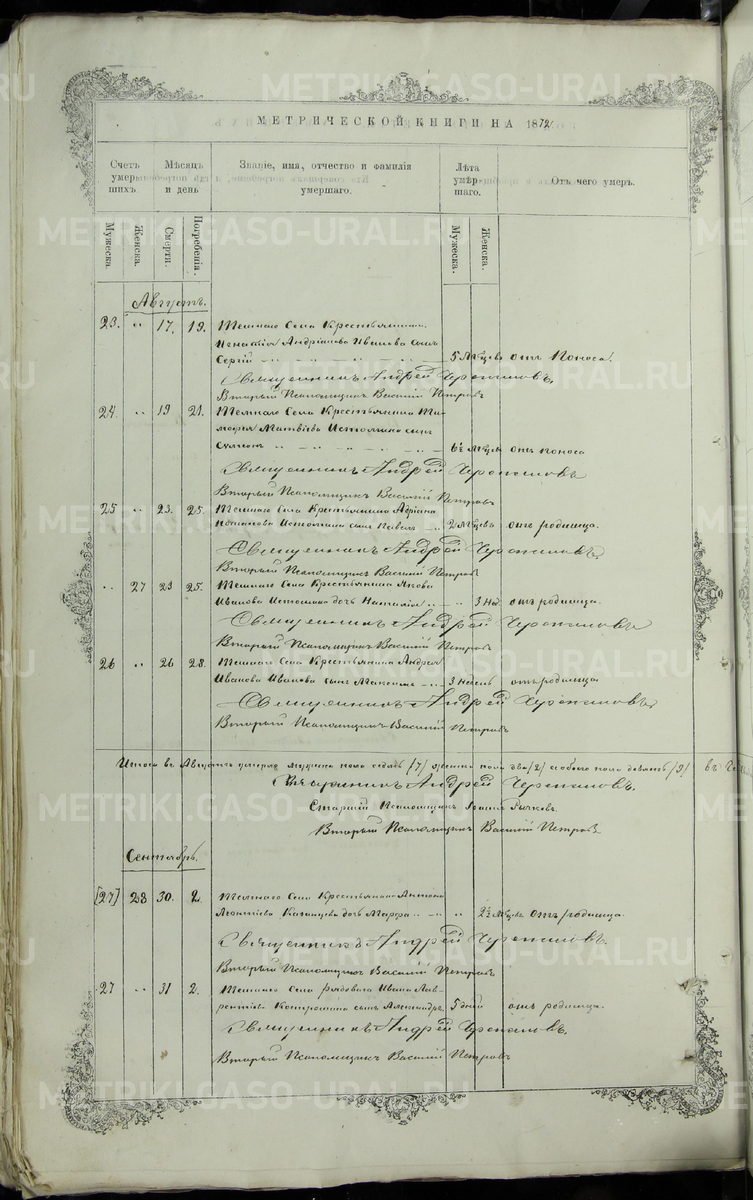 METRIKI.GASO-URAL.RU
МЕТРИЧЕСКОЙ КНИГИ НА 1872
Счетъ умершихъ.
Мѣсяцъ и день
Званіе, имя, отчество и фамилія умершаго.
Лѣта умершаго.
Отъ чего умеръ.
Мужеска.
Женска.
Смерти.
Погребенія.
Мужеска.
Женска.
Августъ.
23. " 17. 19. Темнаго Села Крестьянина
Игнатія Андріанова Иванова сынъ
Сергій 5 Мцевъ отъ Поноса.
Священникъ Андрей
Вторый Псаломщикъ Василій Петровъ
24. " 19 21. Темнаго Села Крестьянина Ти-
мофея Матвѣева Истомина сынъ
Симеон 6½ Мцев отъ поноса
Священникъ Андрей
Вторый Псаломщикъ Василій Петровъ
25 " 23. 25. Темнаго Села Крестьянина Адріана
Истомина сынъ Павелъ 2 Мцевъ отъ родимца.
Священникъ Андрей
Вторый Псаломщикъ Василій Петровъ
" 27 23 25. Темнаго Села Крестьянина Якова
Иванова Истомина дочь Наталія " 3 Нед отъ родимца.
Священникъ Андрей
Вторый Псаломщикъ Василій Петровъ
26 " 26 28. Темнаго Села Крестьянина Андрея
Иванова Иванова сынъ Максимъ 3 недель отъ родимца
Священникъ Андрей
Вторый Псаломщикъ Василій Петровъ
Итого въ Августѣ умерло мужеска пола седмь /7/ женска пола два /2/ обоего пола девять /9/
Священникъ Андрей
Старшій Псаломщикъ Іоаннъ Бычковъ.
Вторый Псаломщикъ Василій Петровъ
Сентябрь.
[27] 28 30. 2. Темнаго Села Крестьянина Антона
Леонтіева Казанцева дочь Марфа " 2½ Мцевъ отъ родимца.
Священникъ Андрей
Вторый Псаломщикъ Василій Петровъ
27 " 31 2. Темнаго Села рядоваго Ивана Лав-
рентіева сынъ Александръ 5 дней отъ родимца.
Священникъ Андрей
Вторый Псаломщикъ Василій Петровъ